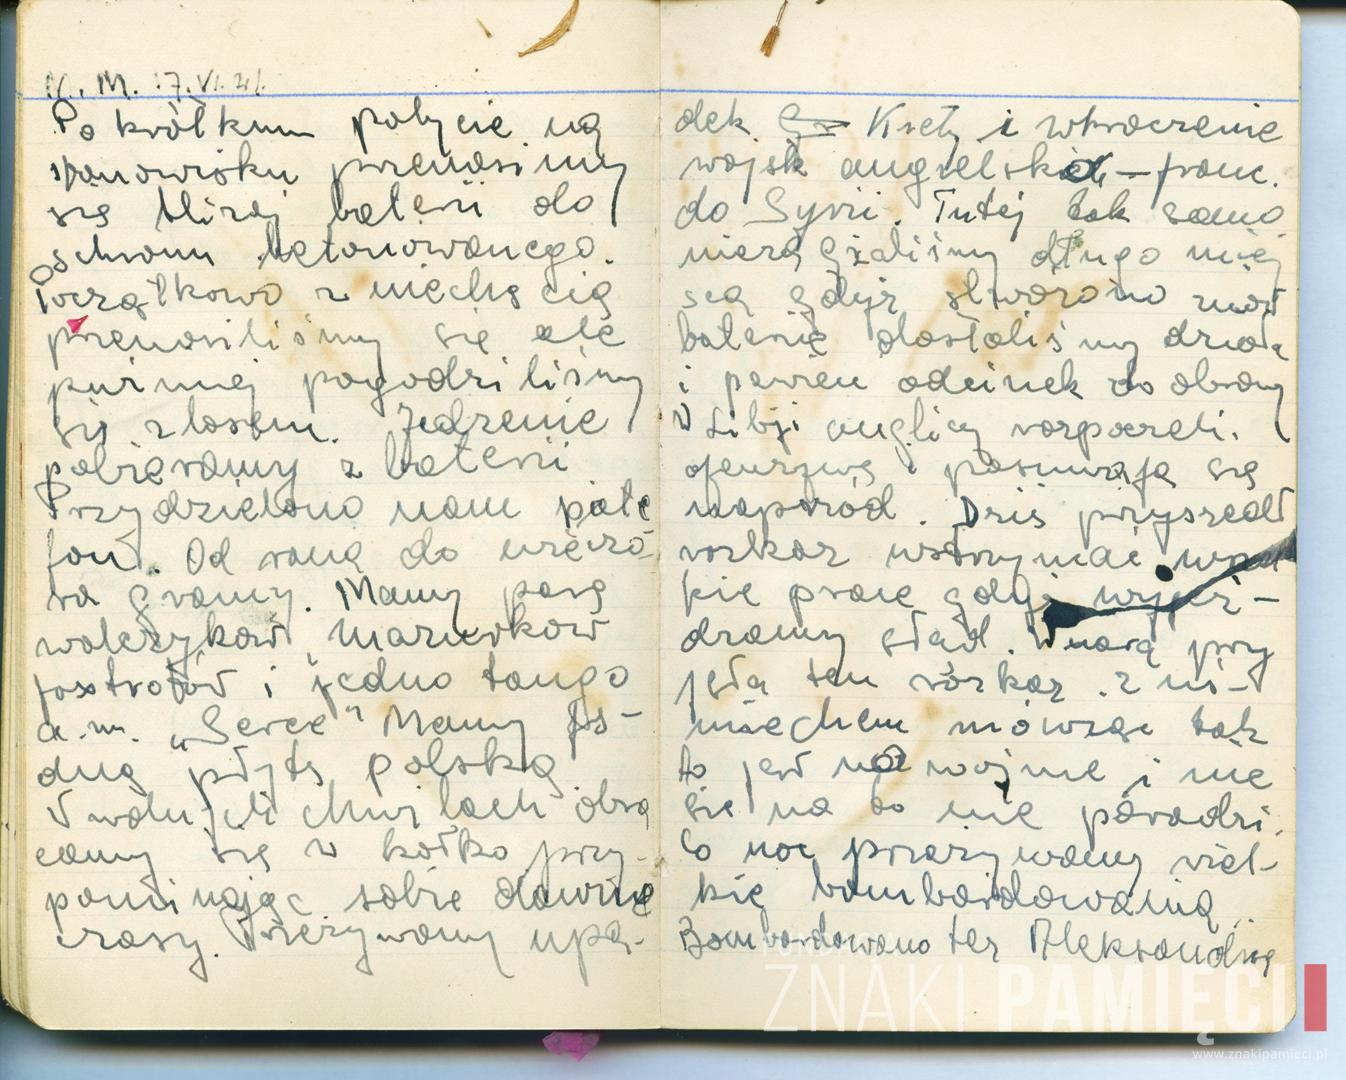 M. 17.VI.41.
Po krótkim pobycie na
stanowisku przenosimy
się bliżej baterii do
schronu betonowanego.
Początkowo z niechęcią
przenosiliśmy się ale
puźniej pogodziliśmy
się z losem. Jedzenie
pobieramy z baterii
Przydzielono nam pate
fon. Od rana do wieczo-
ra gramy. Mamy parę
walczyków, mazurków
foxtrotów i jedno tango
a.m. „Serce” Mamy je-
dną płytę polską
W wolnych chwilach obra
camy się w kółko przy-
pominając sobie dawne
czasy. Przeżywamy upa-
dek Krety i wkroczenie
wojsk angielsko-franc.
do Syrii. Tutej tak samo
nie długo miej
sca gdyż stworzono
baterię dostaliśmy działa
i pewien odcinek do obrony
W Libji anglicy rozpoczeli
ofenzywę i posuwają się
naprzód. Dziś przyszedł
rozkaz wstrzymać wszel
kie prace gdyż wyjeż-
dzamy stąd. Wiarą przy
jęła ten rozkaz z uś-
miechem mówiąc tak
to jest na wojnie i nic
się na to nie poradzi.
Co noc przeżywamy wiel-
kie bombardowania
Bombardowano też Aleksandrię
FUNDACJA
ZNAKI PAMIĘCI
www.znakipamieci.pl